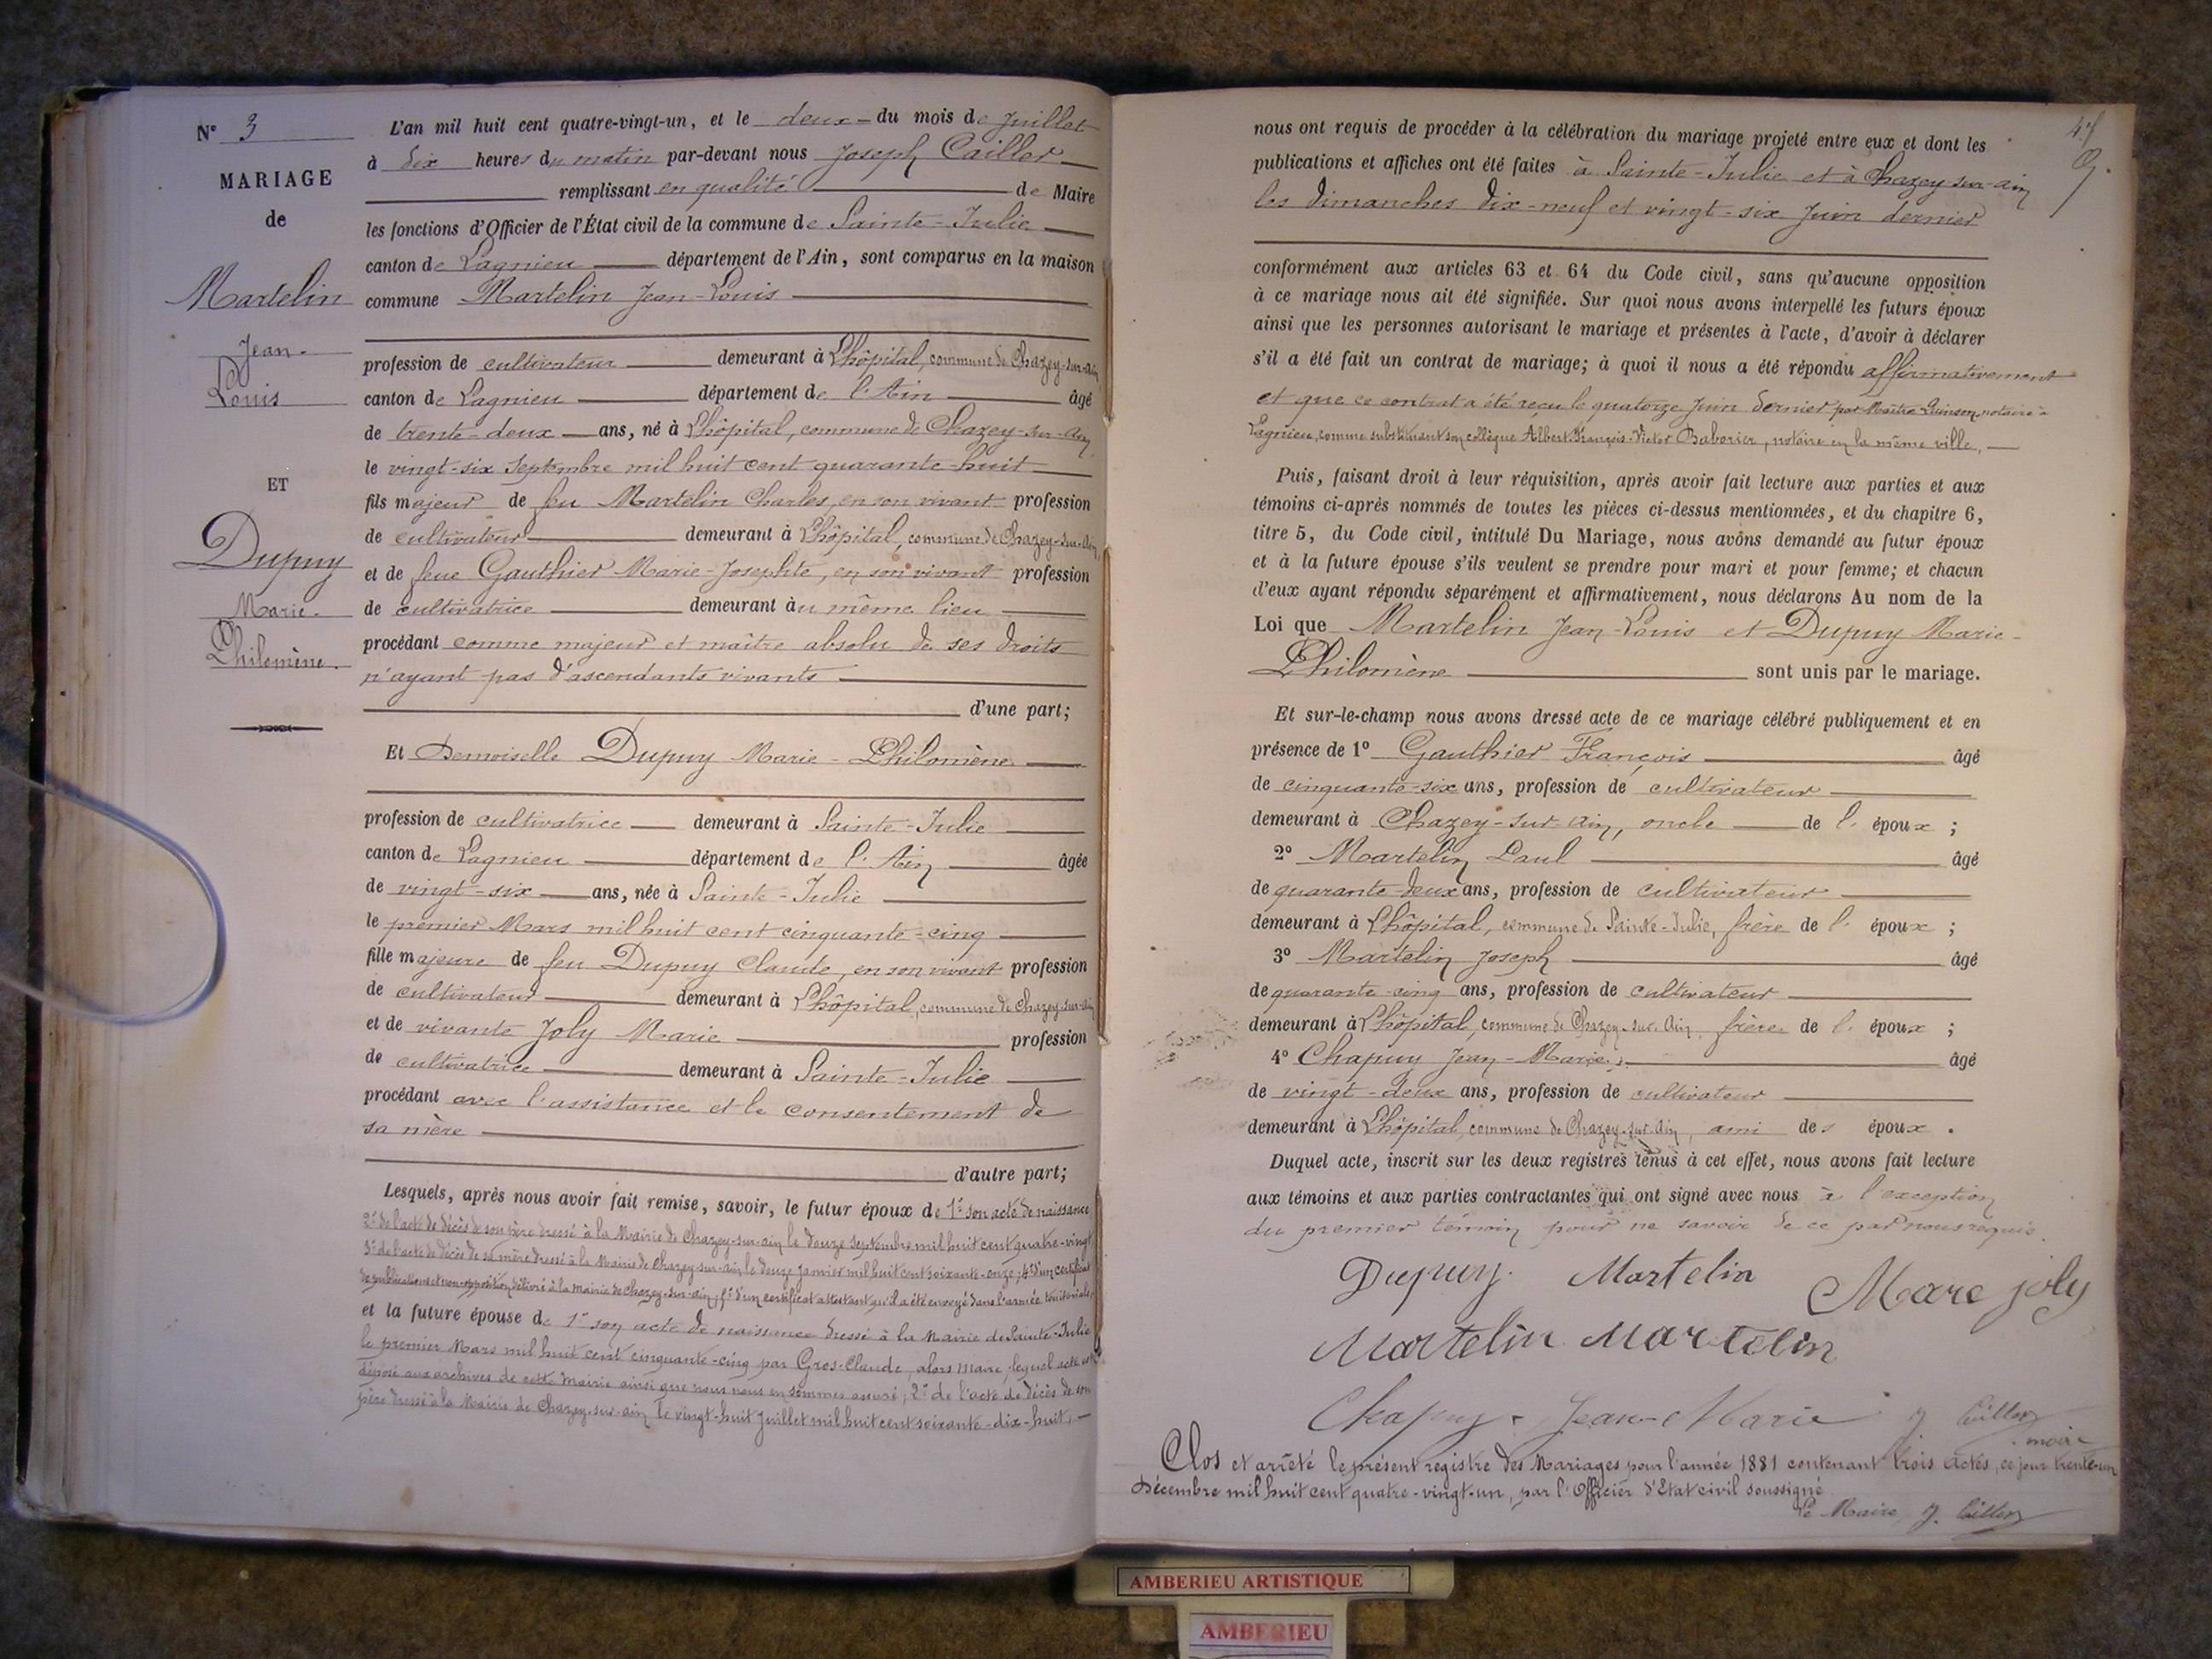 N° 3
MARIAGE
de
Martelin
Jean-
Louis
ET
Dupuy
Marie-
Philomène.
L'an mil huit cent quatre-vingt-un, et le deux du mois de Juillet
à dix heures du matin par-devant nous Joseph Caillor
remplissant en qualité de Maire
les fonctions d'Officier de l'État civil de la commune de Sainte-Julie
canton de Lagnieu département de l'Ain, sont comparus en la maison
commune Martelin Jean-Louis
profession de cultivateur demeurant à L'hôpital, commune de Chazey-sur-Ain
canton de Lagnieu département de l'Ain âgé
de trente-deux ans, né à L'hôpital, commune de Chazey-sur-Ain,
le vingt-six Septembre mil huit cent quarante-huit
fils majeur de feu Martelin Charles, en son vivant profession
de cultivateur demeurant à L'hôpital, commune de Chazey-sur-Ain,
et de feue Gauthier Marie-Josephte, en son vivant profession
de cultivatrice demeurant au même lieu
procédant comme majeur et maître absolu de ses droits
n'ayant pas d'ascendants vivants
d'une part;
Et Demoiselle Dupuy Marie-Philomène
profession de cultivatrice demeurant à Sainte-Julie
canton de Lagnieu département de l'Ain âgée
de vingt-six ans, née à Sainte-Julie
le premier Mars mil huit cent cinquante-cinq
fille majeure de feu Dupuy Claude, en son vivant profession
de cultivateur demeurant à L'hôpital, commune de Chazey-sur-Ain
et de vivante Joly Marie profession
de cultivatrice demeurant à Sainte-Julie
procédant avec l'assistance et le consentement de
sa mère
d'autre part;
Lesquels, après nous avoir fait remise, savoir, le futur époux de 1° son acte de naissance
2° de l'acte de décès de son père dressé à la Mairie de Chazey-sur-ain le douze septembre mil huit cent quatre-vingt
3° de l'acte de décès de sa mère dressé à la Mairie de Chazey-sur-ain le douze Janvier mil huit cent soixante-onze; 4° d'un certificat
de publications et non-opposition délivré à la mairie de Chazey-sur-ain; 5° d'un certificat attestant qu'il a été envoyé dans l'armée territoriale;
et la future épouse de 1° son acte de naissance dressé à la Mairie de Sainte-Julie
le premier Mars mil huit cent cinquante-cinq par Gros-Claude, alors maire, lequel acte est
déposé aux archives de cette Mairie ainsi que nous nous en sommes assuré; 2° de l'acte de décès de son
père dressé à la Mairie de Chazey-sur-ain le vingt-huit Juillet mil huit cent soixante-dix-huit,
nous ont requis de procéder à la célébration du mariage projeté entre eux et dont les
publications et affiches ont été faites à Sainte-Julie et à Chazey-sur-ain
les dimanches dix-neuf et vingt-six Juin dernier
conformément aux articles 63 et 64 du Code civil, sans qu'aucune opposition
à ce mariage nous ait été signifiée. Sur quoi nous avons interpellé les futurs époux
ainsi que les personnes autorisant le mariage et présentes à l'acte, d'avoir à déclarer
s'il a été fait un contrat de mariage; à quoi il nous a été répondu affirmativement
et que ce contrat a été reçu le quatorze Juin dernier par Maître Quinson, notaire à
Lagnieu, comme substituant son collègue Albert-François-Victor Baborier, notaire en la même ville,
Puis, faisant droit à leur réquisition, après avoir fait lecture aux parties et aux
témoins ci-après nommés de toutes les pièces ci-dessus mentionnées, et du chapitre 6,
titre 5, du Code civil, intitulé Du Mariage, nous avons demandé au futur époux
et à la future épouse s'ils veulent se prendre pour mari et pour femme; et chacun
d'eux ayant répondu séparément et affirmativement, nous déclarons Au nom de la
Loi que Martelin Jean-Louis et Dupuy Marie-
Philomène sont unis par le mariage.
Et sur-le-champ nous avons dressé acte de ce mariage célébré publiquement et en
présence de 1° Gauthier François âgé
de cinquante-six ans, profession de cultivateur
demeurant à Chazey-sur-Ain, oncle de l'époux;
2° Martelin Paul âgé
de quarante-deux ans, profession de cultivateur
demeurant à L'hôpital, commune de Sainte-Julie, frère de l'époux;
3° Martelin Joseph âgé
de quarante-cinq ans, profession de cultivateur
demeurant à L'hôpital, commune de Chazey-sur-Ain, frère de l'époux;
4° Chapuy Jean-Marie, âgé
de vingt-deux ans, profession de cultivateur
demeurant à L'hôpital, commune de Chazey-sur-Ain, ami des époux.
Duquel acte, inscrit sur les deux registres tenus à cet effet, nous avons fait lecture
aux témoins et aux parties contractantes qui ont signé avec nous à l'exception
du premier témoin pour ne savoir de ce par nous requis.
Dupuy. Martelin Mare joly
Martelin Martelin
Chapuy Jean-Marie J Caillor
maire
Clos et arrêté le présent registre des Mariages pour l'année 1881 contenant trois actes, ce jour trente-un
Décembre mil huit cent quatre-vingt-un, par l'Officier d'Etat civil soussigné
Le Maire, J. Caillor
AMBERIEU ARTISTIQUE
AMBERIEU